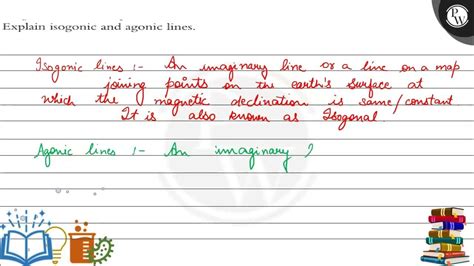 Explain isogonic and agonic lines.
Isogonic lines :- An imaginary line or a line on a map
joining points on the earth's surface at
which the magnetic declination is same/constant
It is also known as Isogonal
Agonic lines :- An imaginary